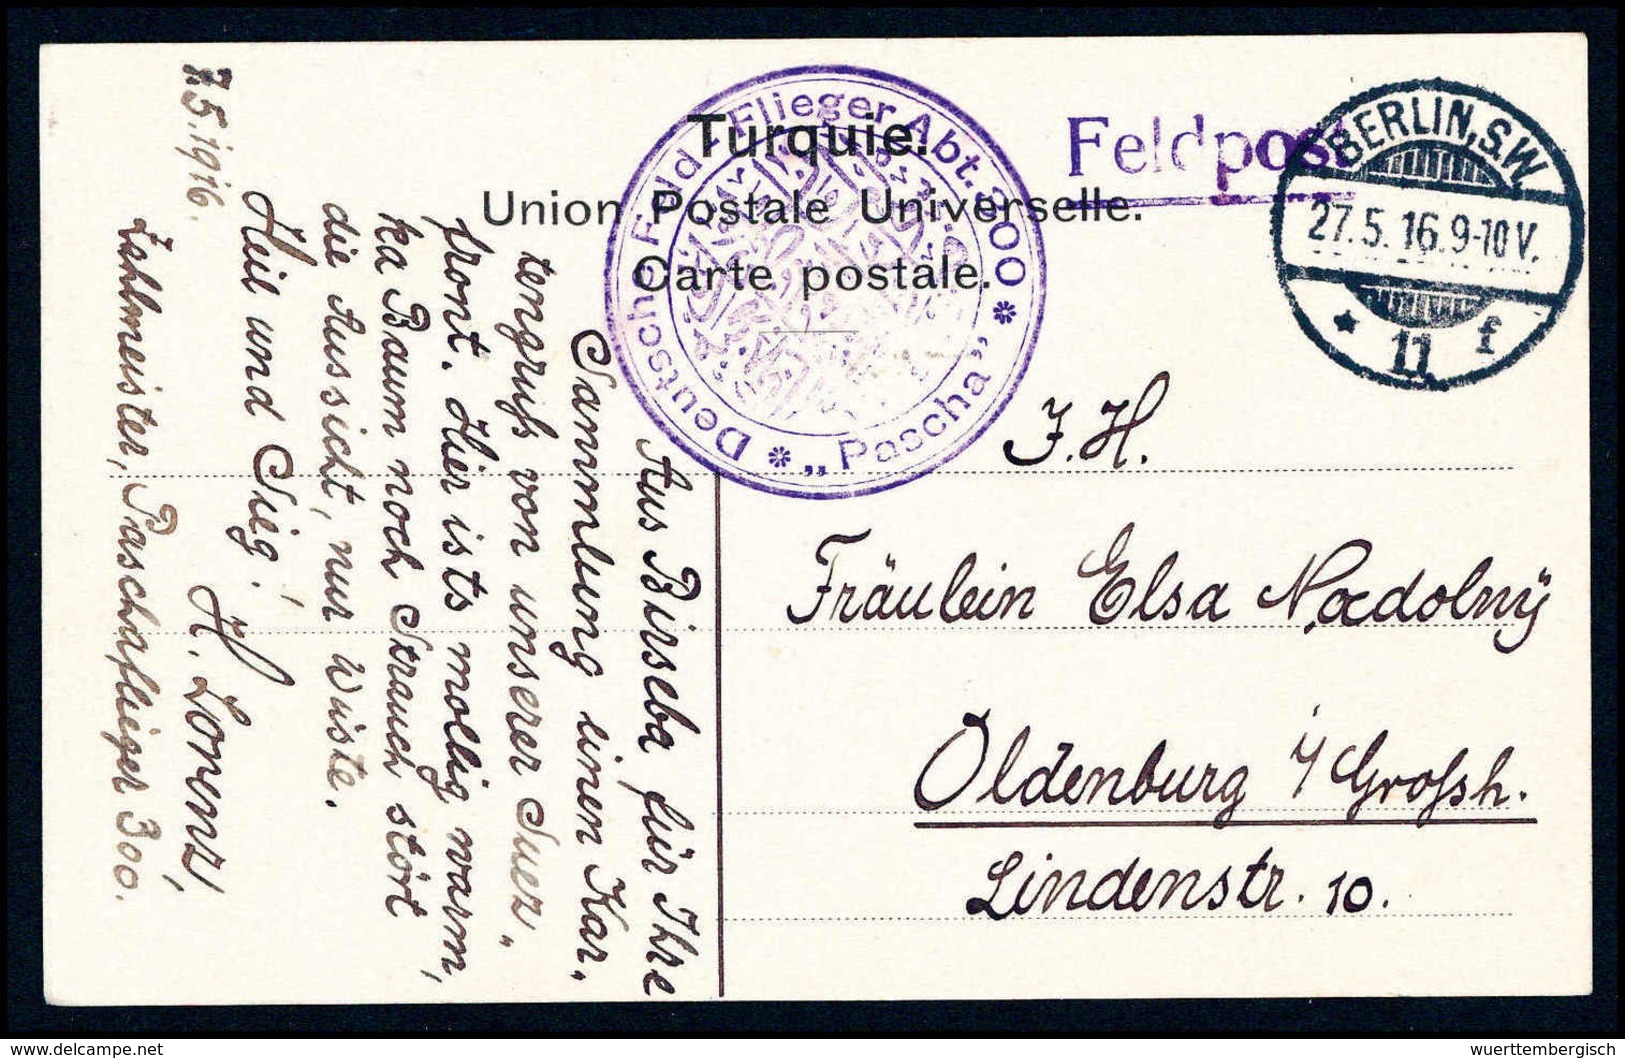 Turquie.
Union Postale Universelle.
Carte postale.
Deutsche Feld-Flieger Abt. 300
„Pascha“
Feldpost
BERLIN, S.W.
27.5.16.9-10V.
* 11 f
7.5.1916.
Aus Birseba für Ihre
Sammlung einen Kar-
tengruß von unserer Suez-
front. Hier ists mollig warm,
ka Baum noch Strauch stört
die Aussicht, nur Wüste.
Heil und Sieg!
H. Lorenz,
Zahlmeister, Paschaflieger 300.
J. H.
Fräulein Elsa Nadolny
Oldenburg i/Großh.
Lindenstr. 10.
www.delcampe.net
wuerttembergisch